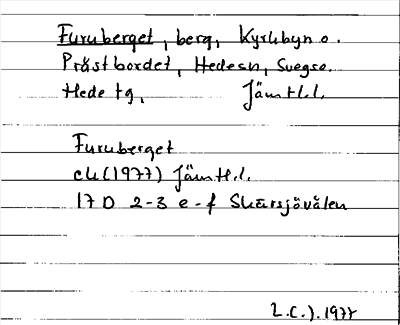 Furuberget, berg, Kyrkbyn o.
Prästbordet, Hedesn, Svegso.
Hede tg, Jämtl.l.
Furuberget
ek (1977) Jämtl.l.
17 D 2-3 e-f Skärsjövålen
L.C.J. 1977